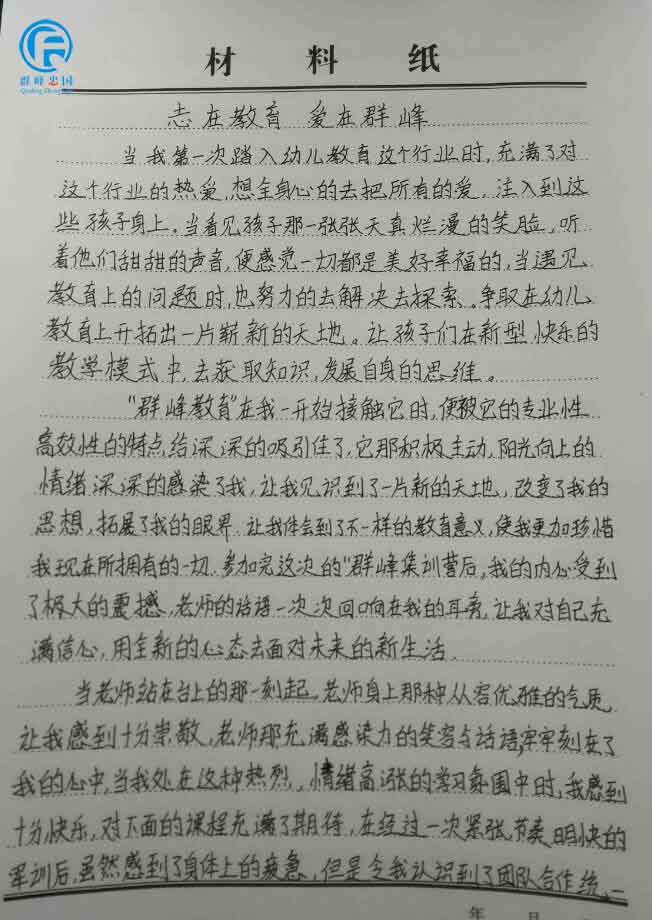 群峰忠国
材料纸
志在教育 爱在群峰
当我第一次踏入幼儿教育这个行业时,充满了对
这个行业的热爱,想全身心的去把所有的爱,注入到这
些孩子身上。当看见孩子那一张张天真烂漫的笑脸,听
着他们甜甜的声音,便感觉一切都是美好幸福的,当遇见
教育上的问题时,也努力的去解决去探索。争取在幼儿
教育上开拓出一片崭新的天地。让孩子们在新型快乐的
教学模式中,去获取知识,发展自身的思维。
"群峰教育"在我一开始接触它时,便被它的专业性
高效性的特点,给深深的吸引住了,它那积极主动,阳光向上的
情绪深深的感染了我,让我见识到了一片新的天地,改变了我的
思想,拓展了我的眼界.让我体会到了不一样的教育意义,使我更加珍惜
我现在所拥有的一切.参加完这次的"群峰集训营后,我的内心受到
了极大的震撼,老师的话语一次次回响在我的耳旁,让我对自己充
满信心,用全新的心态去面对未来的新生活.
当老师站在台上的那一刻起,老师身上那种从容优雅的气质,
让我感到十分崇敬,老师那充满感染力的笑容与话语,牢牢刻在了
我的心中,当我处在这种热烈,情绪高涨的学习氛围中时,我感到
十分快乐,对下面的课程充满了期待,在经过一次紧张,节奏明快的
军训后,虽然感到了身体上的疲惫,但是令我认识到了团队合作统一
年 月